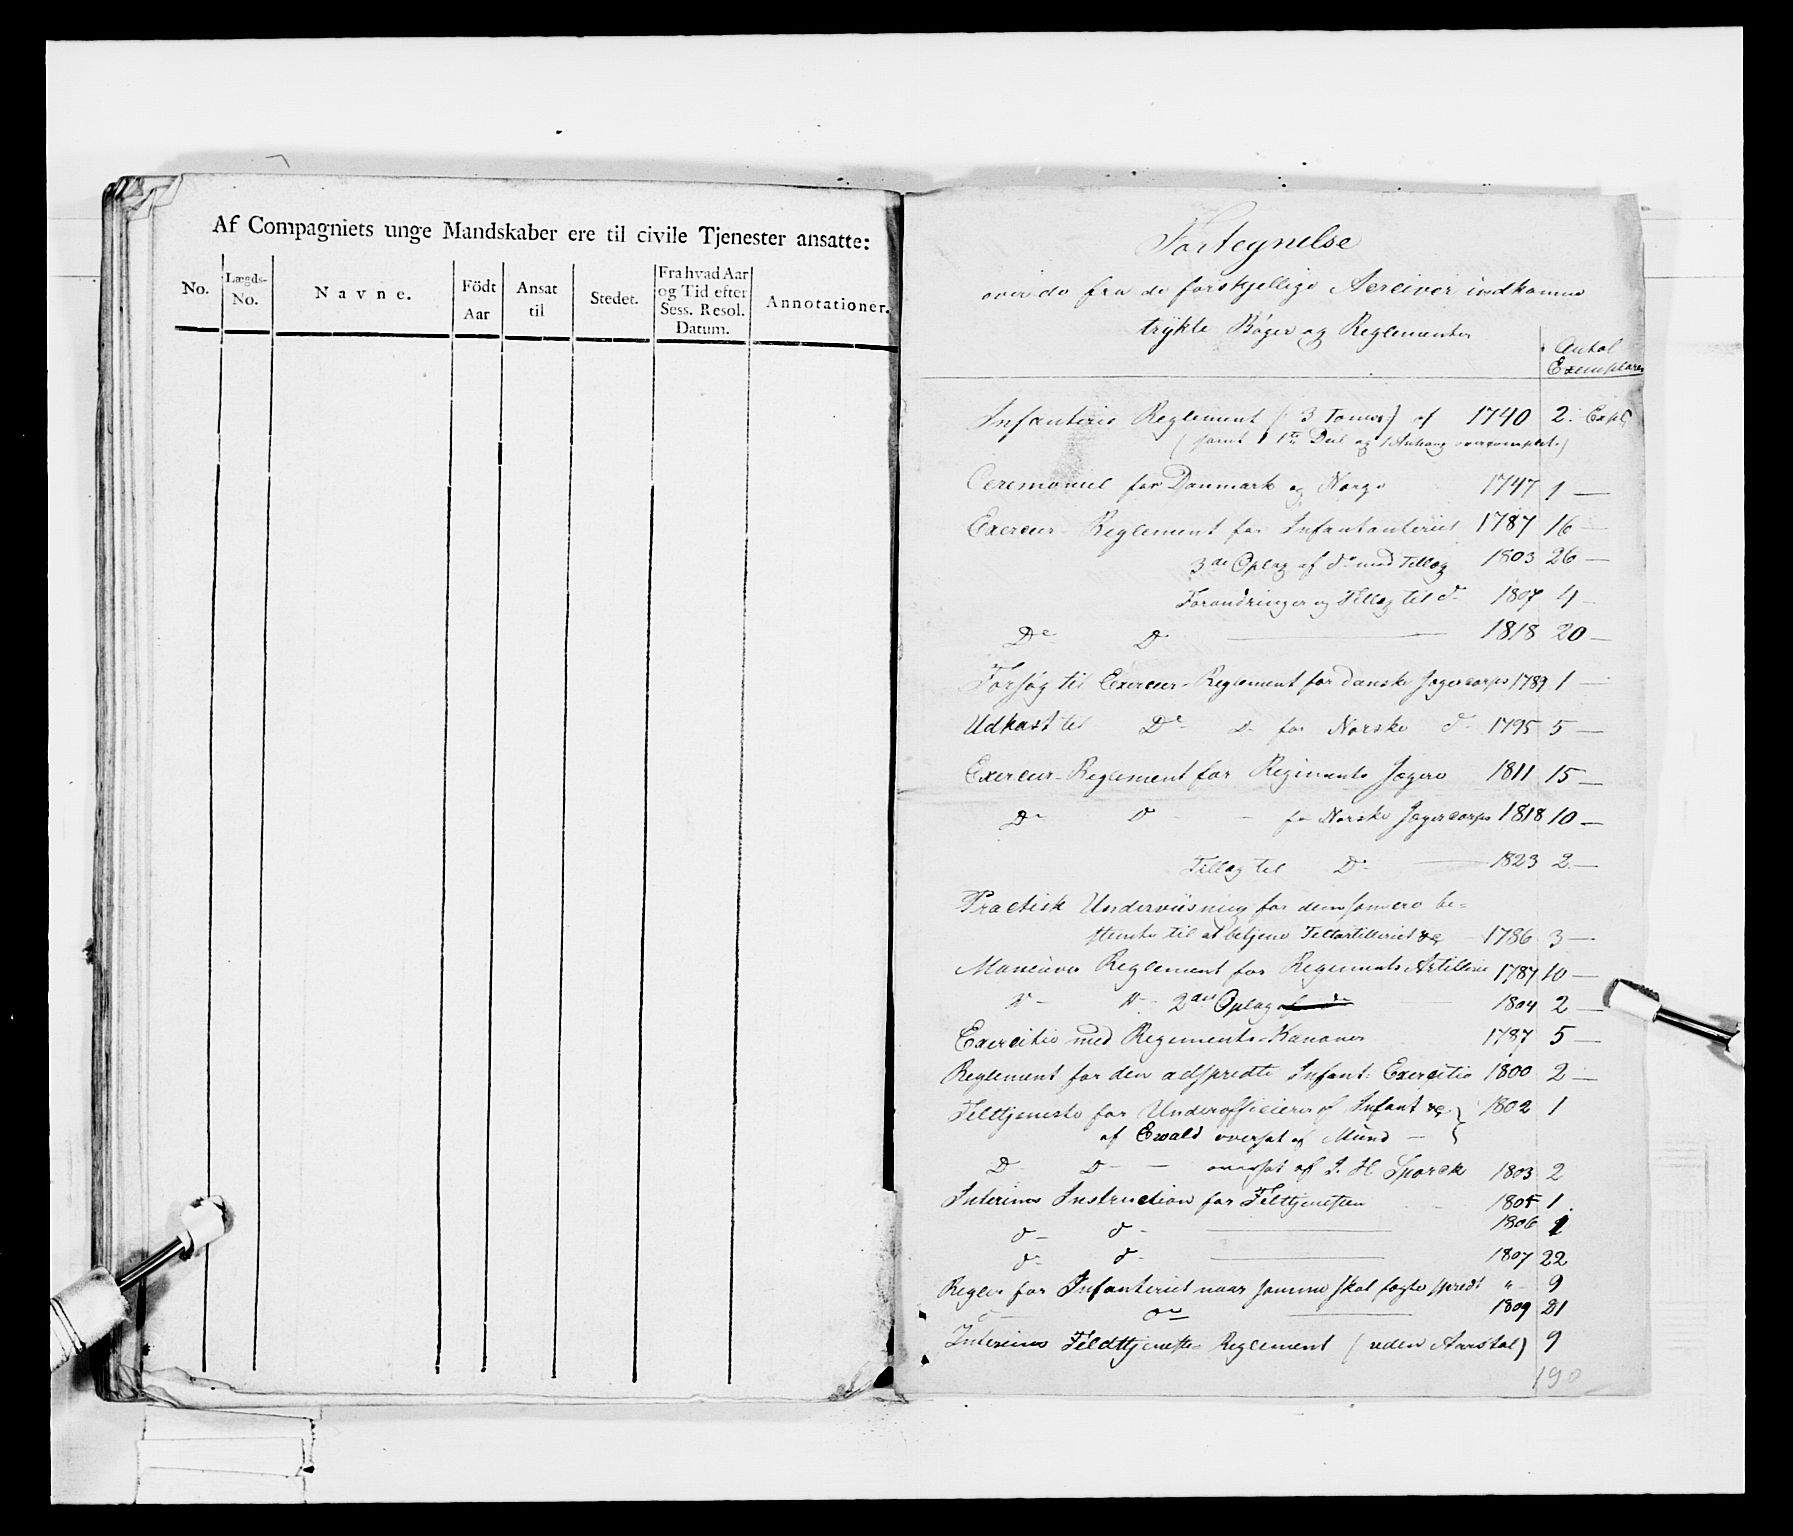 Af Compagniets unge Mandskaber ere til civile Tjenester ansatte:
No.
Lægds-
No.
Navne.
Födt
Aar
Ansat
til
Stedet.
Fra hvad Aar
og Tid efter
Sess. Resol.
Datum.
Annotationer.
Fortegnelse
over de fra de forskjellige Arciver indkomne
trykte Bøger og Reglementer
Antal
Exemplarer
Infanterie Reglement (3 Tomer) af 1740 2. Expl
(samt 1 1te Deel og 1 Anhang overcomplet.)
Ceremoniel for Danmark og Norge 1747 1 —
Exercer-Reglement for Infantanteriet 1787 16 —
3de Oplag af do med Tillæg 1803 26 —
Forandringer og Tillæg til do 1807 4 —
Do Do — 1818 20 —
Forsøg til Exercer-Reglement for danske Jægercorps 1789 1 —
Udkast til Do do for Norske do 1795 5 —
Exercer-Reglement for Regiments Jægere 1811 15 —
Do do - for Norske Jægercorps 1818 10 —
Tillæg til Do — 1823 2 —
Practisk Underviisning for dem som ere be=
stemte til at betjene Feltartilleriet &c — 1786 3 —
Maneuver Reglement for Regiments Artillerie 1787 10 —
do do 2det Oplag af do — 1804 2 —
Exercitie med Regiments-Kanoner 1787 5 —
Reglement for den adspredte Infant: Exercitie 1800 2 —
Felttjeneste for Underofficierer af Infant &c } 1802 1
af Ewald oversat af Münd —
Do Do — oversat af J. H. Sporck 1803 2
Interims Instruction for Felttjenesten 1805 1.
do do — 1806 1
do do — 1807 22
Regler for Infanteriet naar samme skal fægte spredt " 9
do do — 1809 21
Interims Feldttjeneste-Reglement (uden Aarstal) 9
190